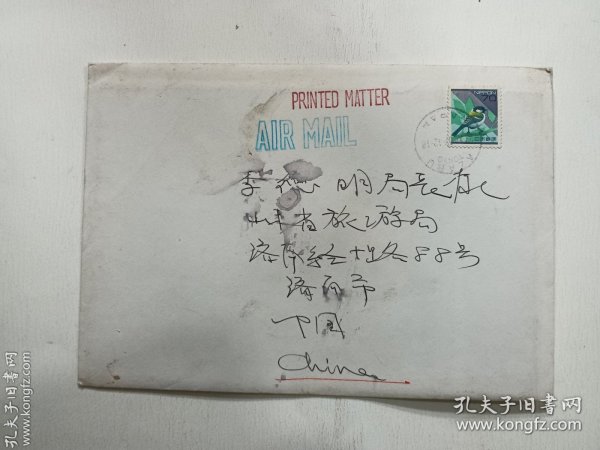 PRINTED MATTER
AIR MAIL
NIPPON
70
李德明局長
山东省旅游局
济南経十路88号
济南市
中国
China
孔夫子旧书网
www.kongfz.com
孔夫子旧书网
www.kongfz.com